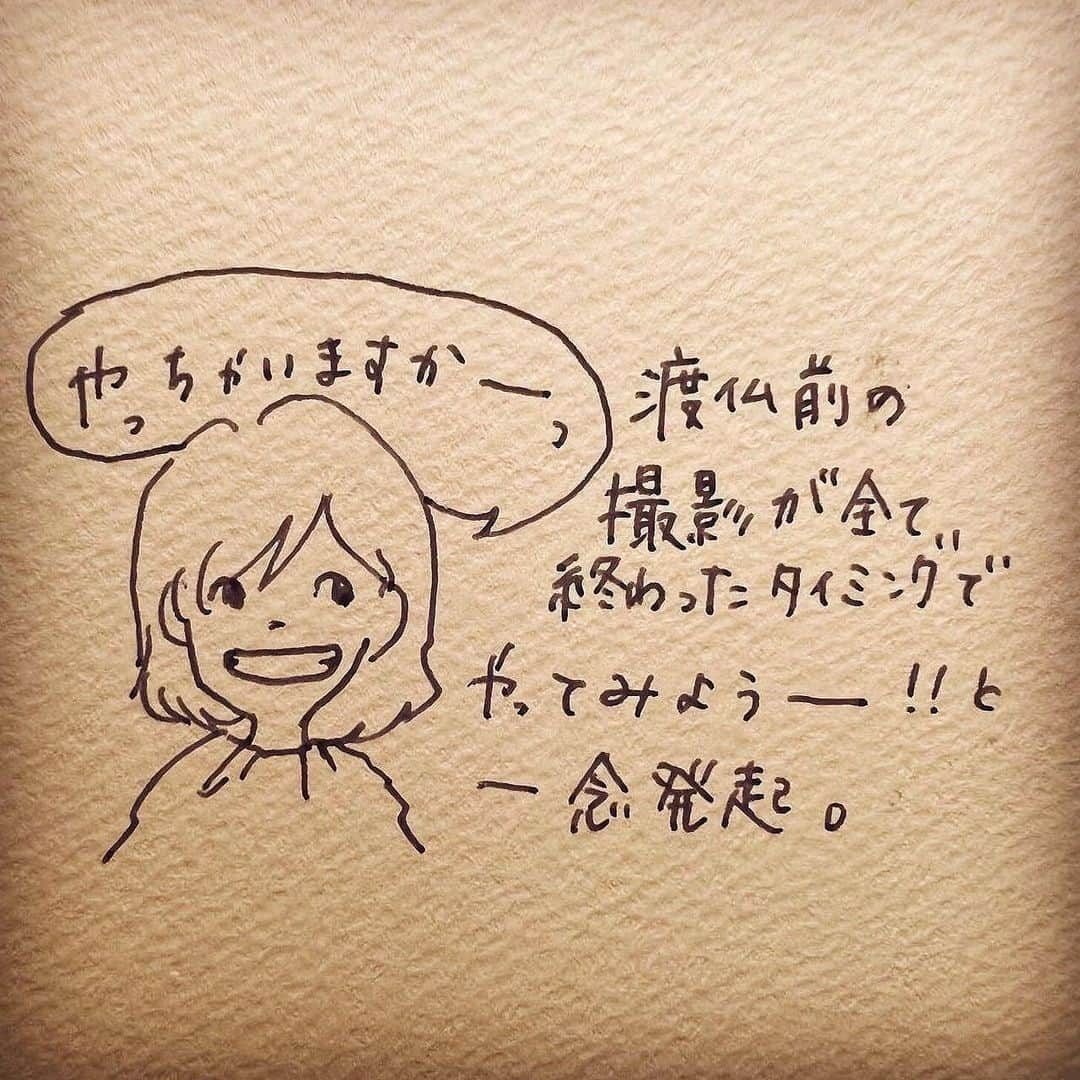 やっちがいますかーっ
渡仏前の
撮影が全て
終わったタイミングで
やってみようー!!と
一念発起。